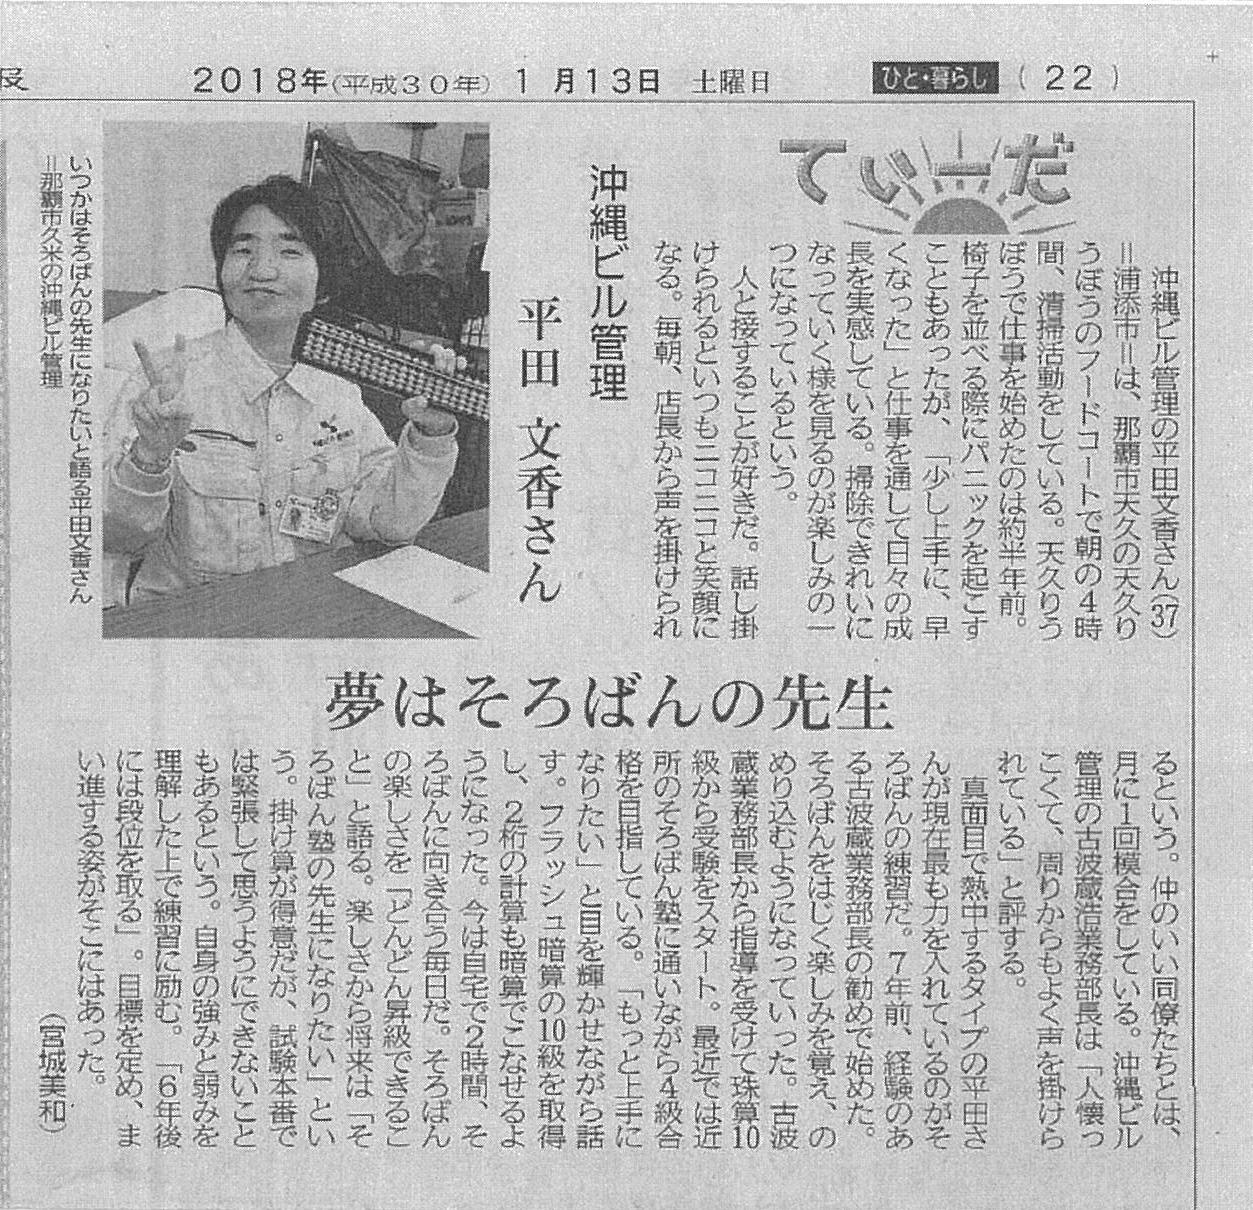 2018年(平成30年) 1月13日 土曜日 ひと・暮らし (22)
てぃーだ
沖縄ビル管理
平田 文香さん
沖縄ビル管理の平田文香さん(37)
=浦添市=は、那覇市天久の天久り
うぼうのフードコートで朝の4時
間、清掃活動をしている。天久りう
ぼうで仕事を始めたのは約半年前。
椅子を並べる際にパニックを起こす
こともあったが、「少し上手に、早
くなった」と仕事を通して日々の成
長を実感している。掃除できれいに
なっていく様を見るのが楽しみの一
つになっているという。
人と接することが好きだ。話し掛
けられるといつもニコニコと笑顔に
なる。毎朝、店長から声を掛けられ
いつかはそろばんの先生になりたいと語る平田文香さん
=那覇市久米の沖縄ビル管理
夢はそろばんの先生
るという。仲のいい同僚たちとは、
月に1回模合をしている。沖縄ビル
管理の古波蔵浩業務部長は「人懐っ
こくて、周りからもよく声を掛けら
れている」と評する。
真面目で熱中するタイプの平田さ
んが現在最も力を入れているのがそ
ろばんの練習だ。7年前、経験のあ
る古波蔵業務部長の勧めで始めた。
そろばんをはじく楽しみを覚え、の
めり込むようになっていった。古波
蔵業務部長から指導を受けて珠算10
級から受験をスタート。最近では近
所のそろばん塾に通いながら4級合
格を目指している。「もっと上手に
なりたい」と目を輝かせながら話
す。フラッシュ暗算の10級を取得
し、2桁の計算も暗算でこなせるよ
うになった。今は自宅で2時間、そ
ろばんに向き合う毎日だ。そろばん
の楽しさを「どんどん昇級できるこ
と」と語る。楽しさから将来は「そ
ろばん塾の先生になりたい」とい
う。掛け算が得意だが、試験本番で
は緊張して思うようにできないこと
もあるという。自身の強みと弱みを
理解した上で練習に励む。「6年後
には段位を取る」。目標を定め、ま
い進する姿がそこにはあった。
(宮城美和)